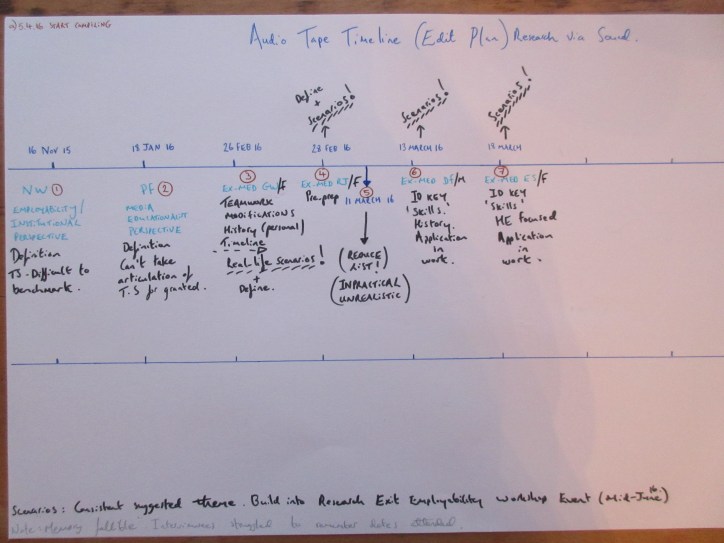 5.4.16 START COMPILING
Audio Tape Timeline (Edit Plan) Research via Sound.
Define
+
Scenarios!
Scenarios!
Scenarios!
16 Nov 15
18 JAN 16
26 FEB 16
28 FEB 16
13 MARCH 16
18 MARCH
NW 1
EMPLOYABILITY/
INSTITUTIONAL
PERSPECTIVE
Definition
TS-Difficult to
benchmark.
PF 2
MEDIA
EDUCATIONALIST
PERSPECTIVE
Definition
Can't take
articulation of
T.S for granted.
3
EX-MED GW/F
TEAMWORK
MODIFICATIONS
History (personal)
Timeline
Real life scenarios!
+
Define.
4
EX-MED RJ/F
Pre-prep
5
11 MARCH 16
(REDUCE
LIST!)
(INPRACTICAL
UNREALISTIC)
6
EX-MED DF/M
ID KEY
'Skills.'
History.
Application
in
work.
7
EX-MED ES/F
ID KEY
'Skills'
HE FOCUSED
Application
in
work.
Scenarios: Consistant suggested theme. Build into Research Exit Employability Workshop Event (Mid-June 16)
Note: Memory fallible Interviewees struggled to remember dates attended.